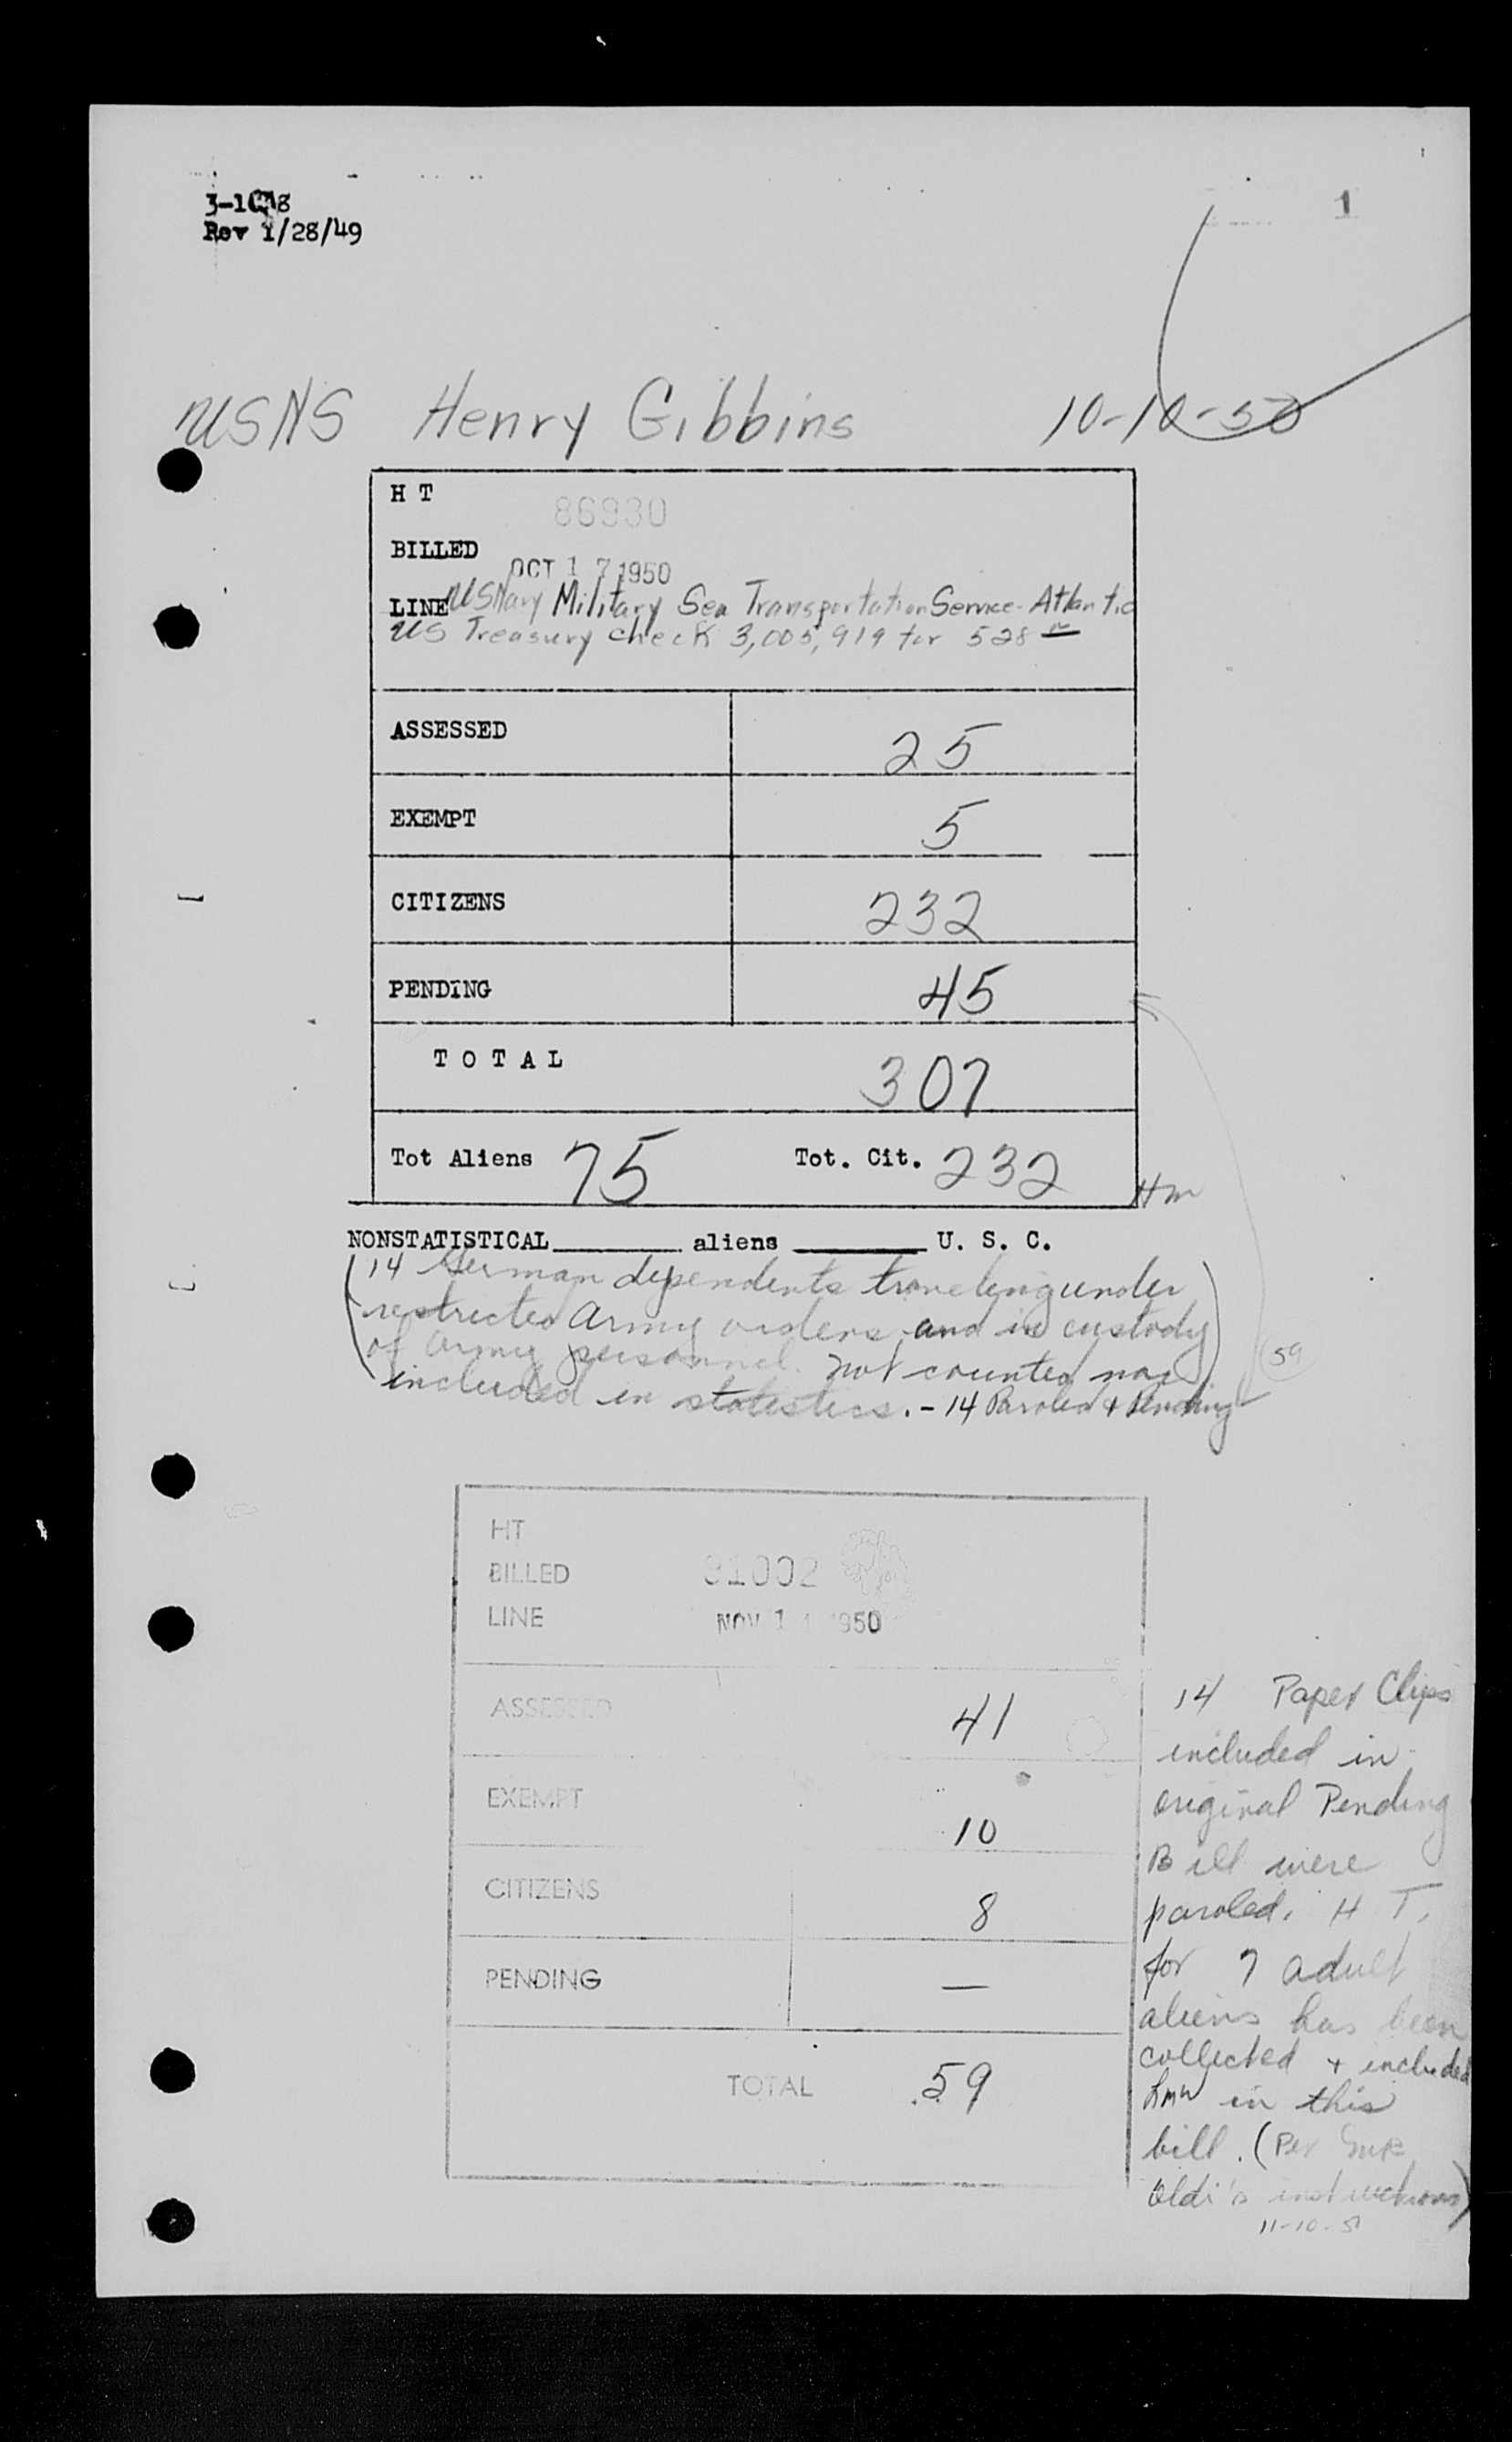 Rev 1/28/49
1
USNS Henry Gibbins 10-10-50
H T 86930
BILLED
OCT 17 1950
LINE US Navy Military Sea Transportation Service - Atlantic
US Treasury check 3,005,919 for 528
ASSESSED 25
EXEMPT 5
CITIZENS 232
PENDING 45
T O T A L 307
Tot Aliens 75 Tot. Cit. 232
Hm
NONSTATISTICAL aliens U. S. C.
(14 German dependents traveling under
restricted Army orders and in custody
of Army personnel. not counted nor)
included in statistics. - 14 Paroled & Pending
59
HT
BILLED 81002
LINE NOV 1 1950
ASSESSED 41
EXEMPT 10
CITIZENS 8
PENDING —
TOTAL 59
14 Paper Clips
included in
original Pending
Bill were
paroled. H T.
for 7 adult
aliens has been
collected & included
in this
bill. (Per
Oldi's instructions)